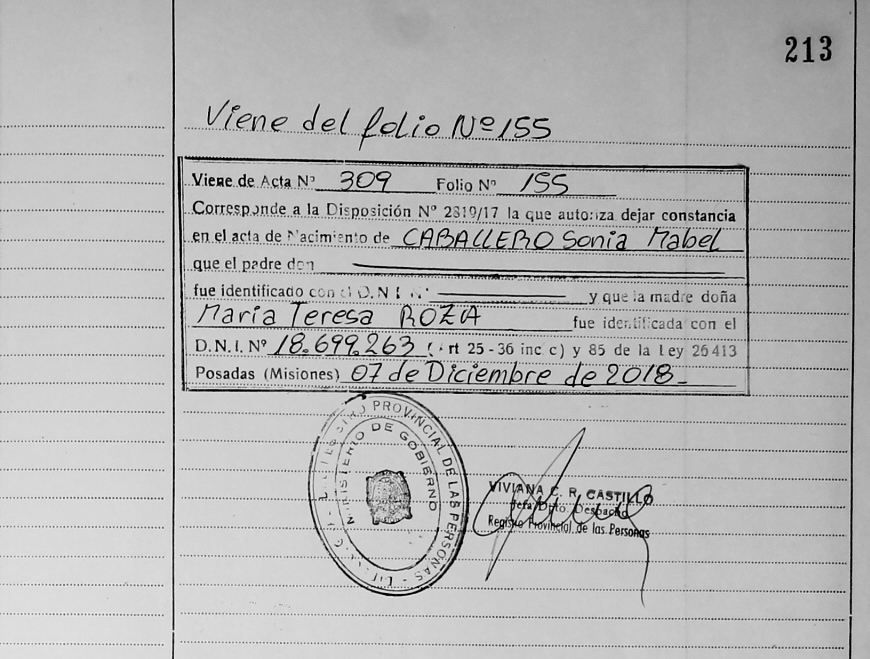 213
Viene del folio Nº 155
Viene de Acta Nº 309 Folio Nº 155
Corresponde a la Disposición Nº 2319/17 la que autoriza dejar constancia
en el acta de Nacimiento de CABALLERO Sonia Mabel
que el padre don
fue identificado con el D.N.I. Nº y que la madre doña
Maria Teresa ROZA fue identificada con el
D.N.I. Nº 18.699.263 (Art 25-36 inc c) y 85 de la Ley 26413
Posadas (Misiones) 07 de Diciembre de 2018_
PROVINCIAL DE LAS PERSONAS
MINISTERIO DE GOBIERNO
VIVIANA C. R. CASTILLO
Jefa Dpto. Despacho
Registro Provincial de las Personas